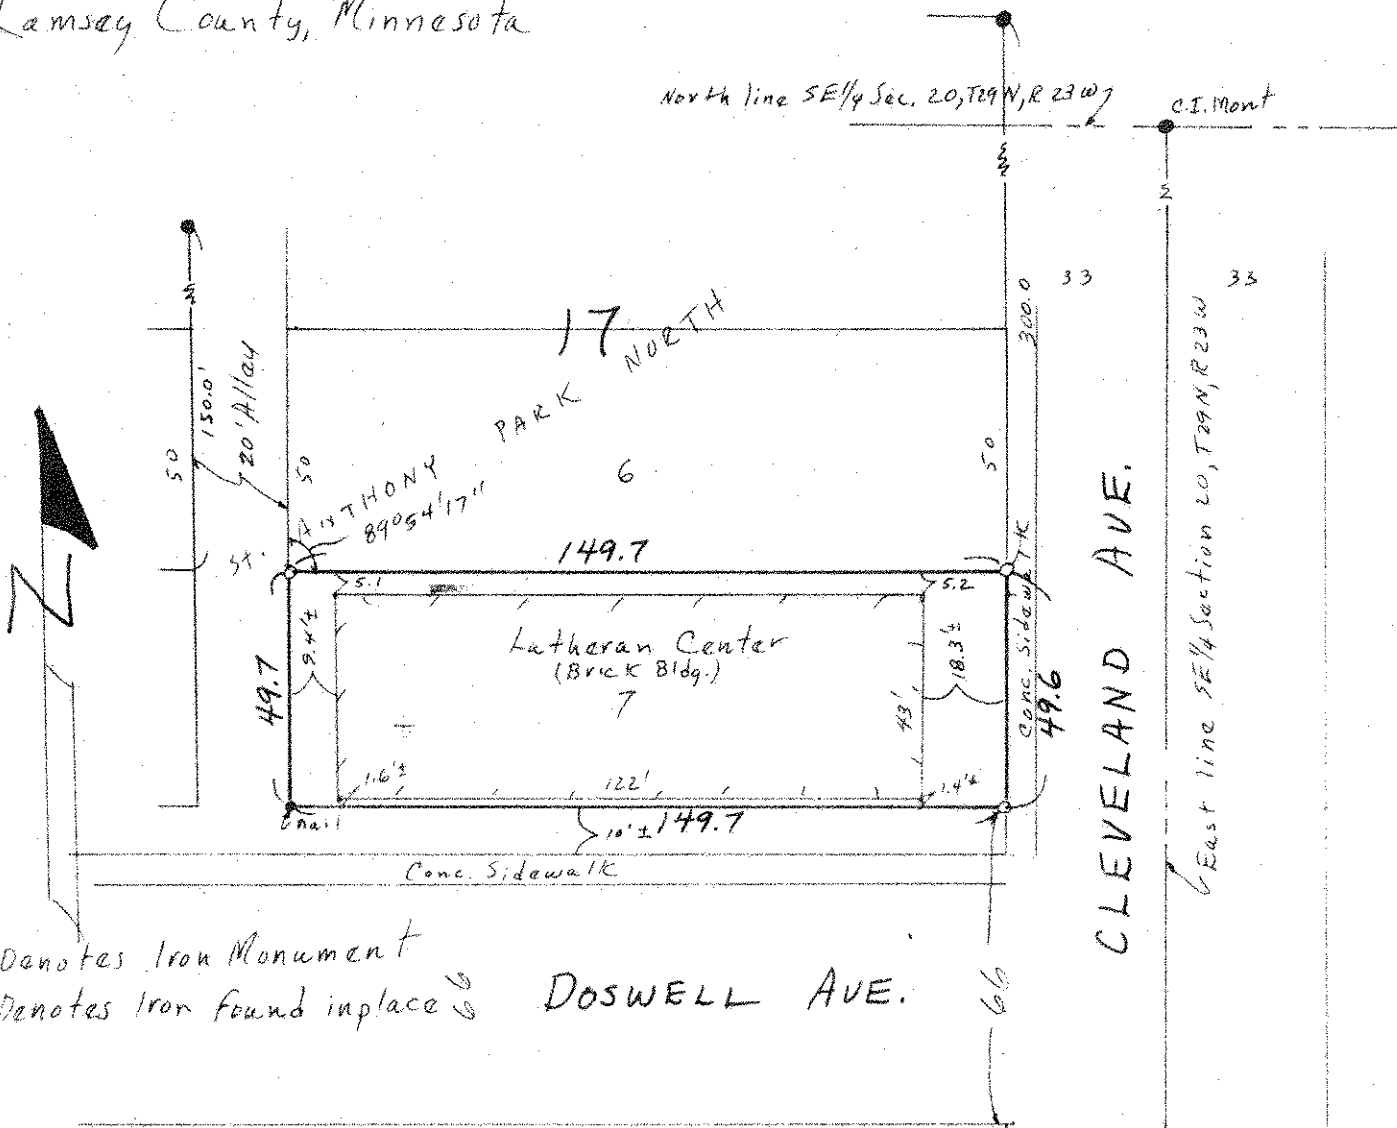 Ramsey County, Minnesota
North line SE¼ Sec. 20, T29N, R23W
C.I. Mont
33
33
300.0
17
ST. ANTHONY PARK NORTH
150.0'
20' Alley
50
50
50
6
89°54'17"
149.7
5.1
5.2
9.4'±
18.3'±
Lutheran Center
(Brick Bldg.)
7
43'
49.7
49.6
Conc. Sidewalk
1.6'±
122'
1.4'±
10'±
149.7
Conc. Sidewalk
CLEVELAND AVE.
East line SE¼ Section 20, T29N, R23W
N
Denotes Iron Monument
Denotes Iron found inplace
66
DOSWELL AVE.
66